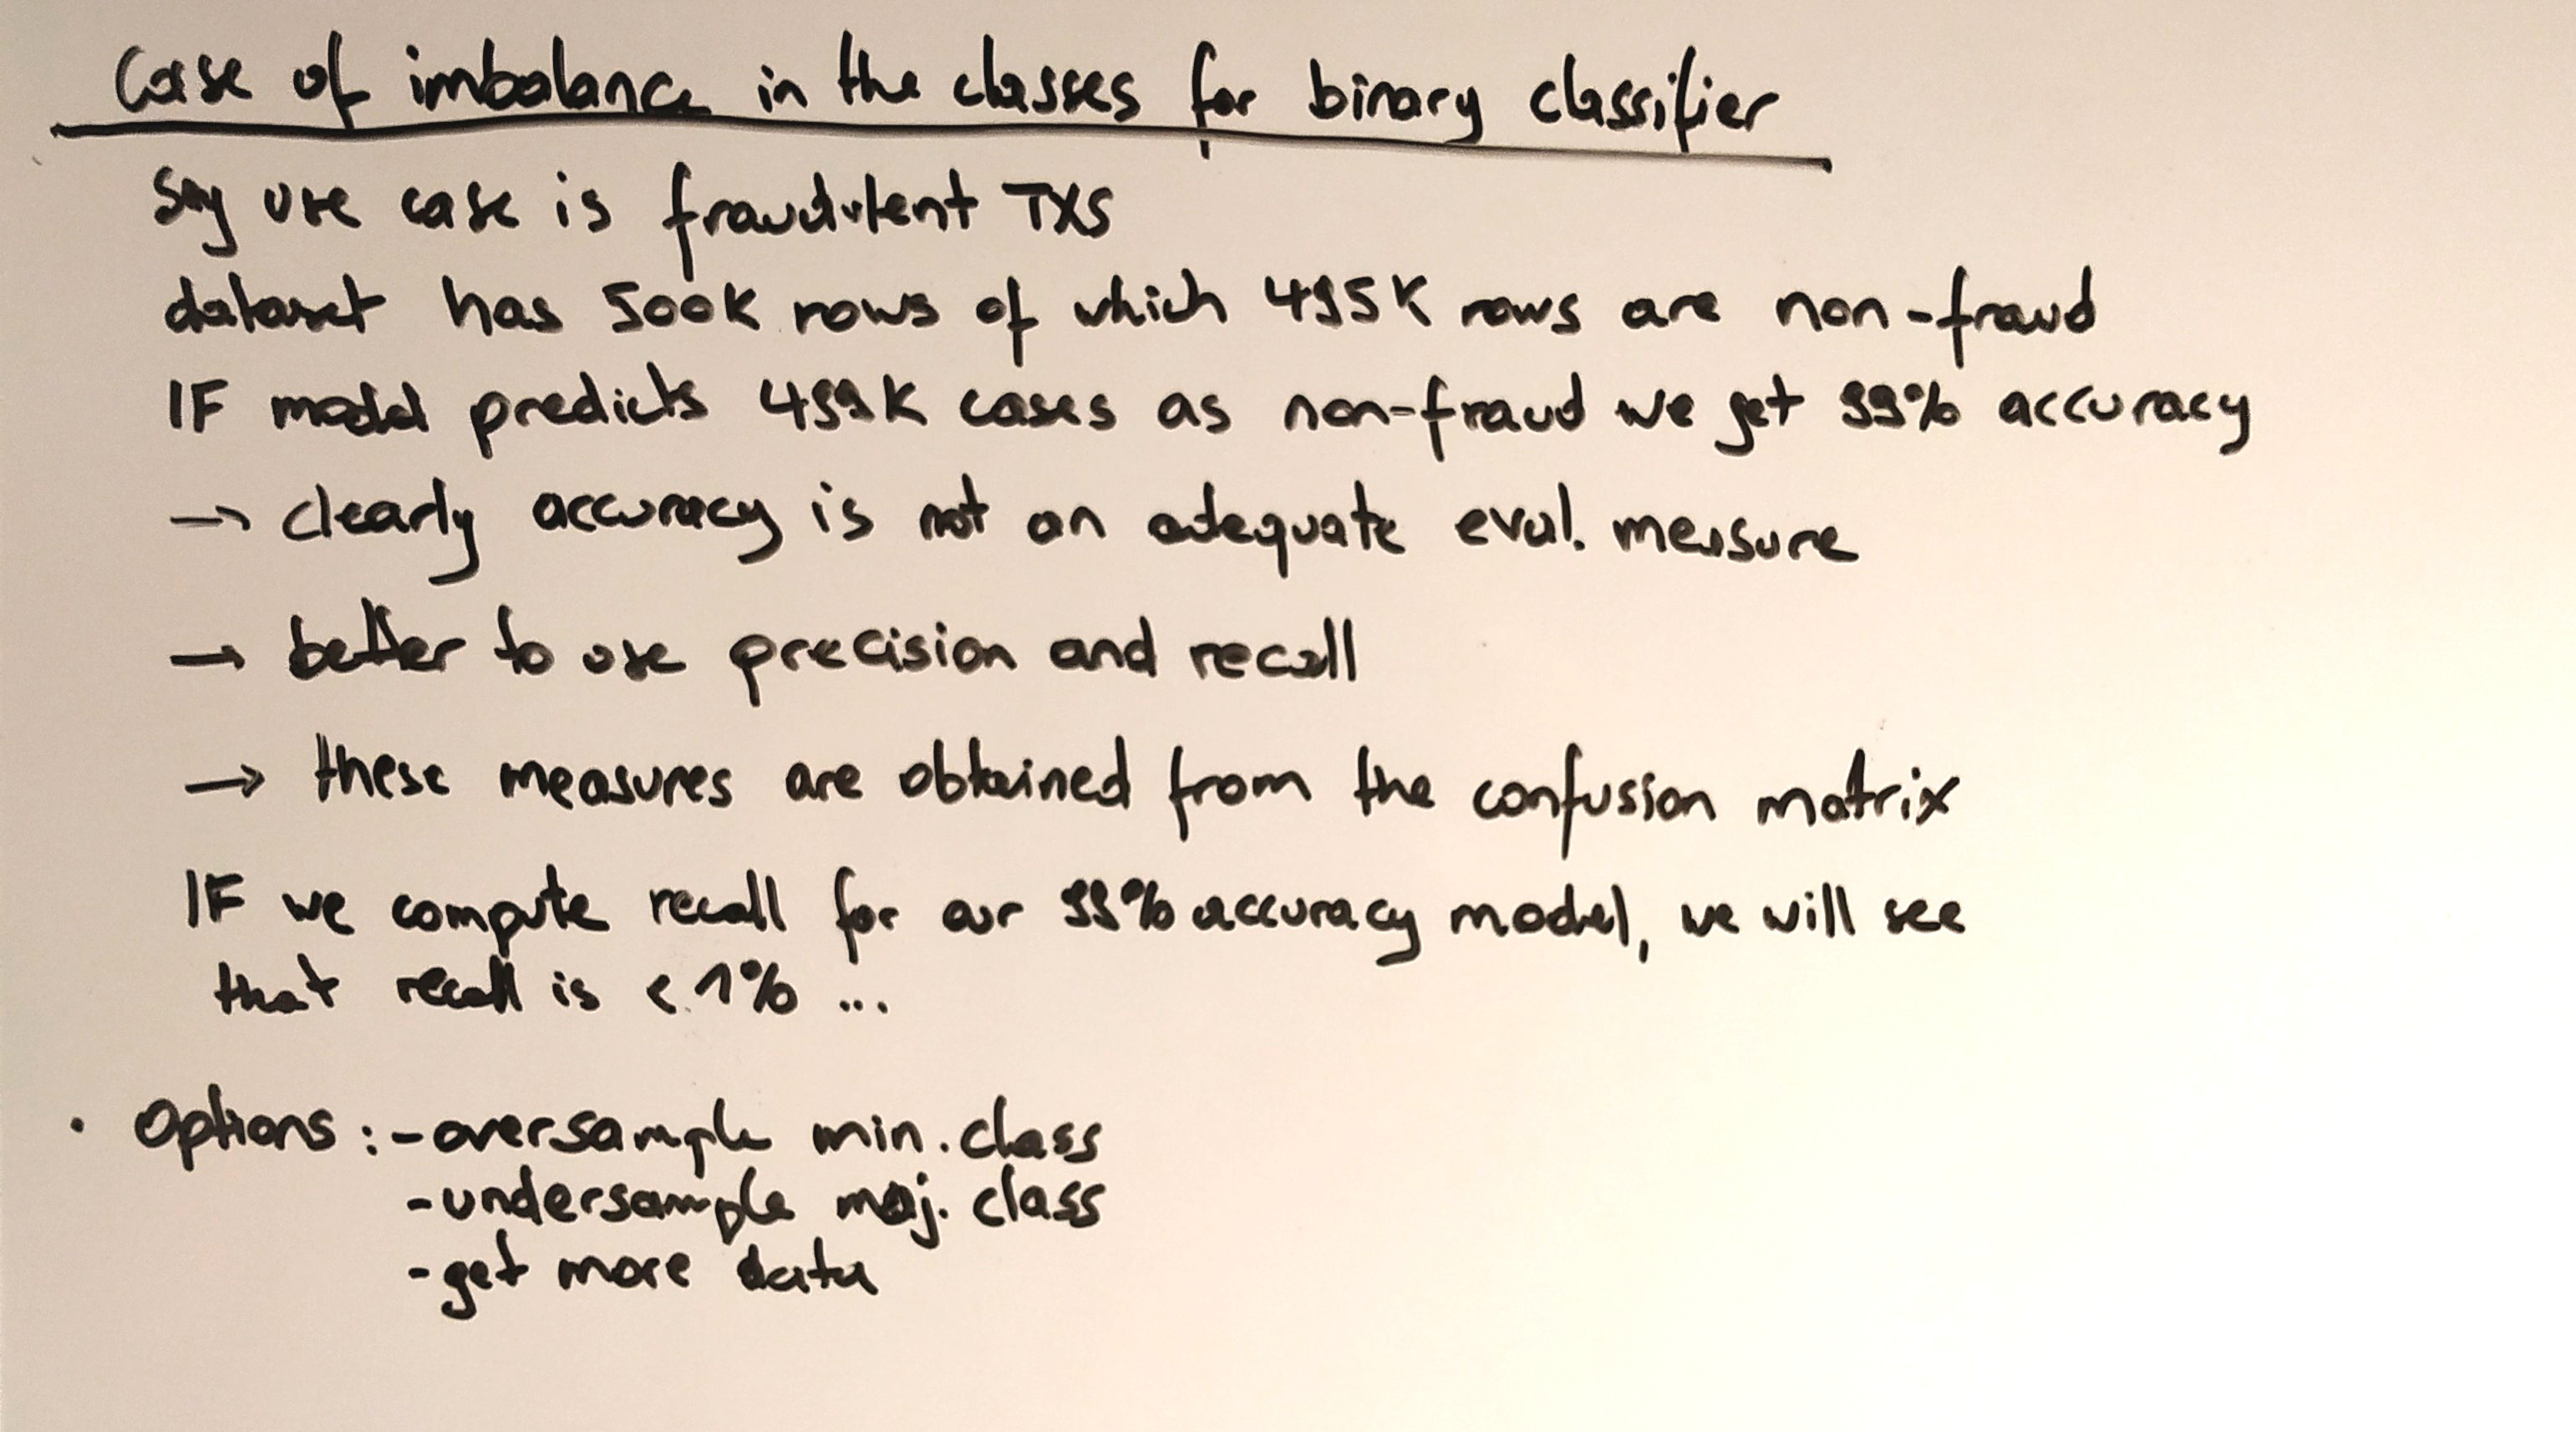 Case of imbalance in the classes for binary classifier
Say use case is fraudulent TXS
dataset has 500K rows of which 495K rows are non-fraud
IF model predicts 499K cases as non-fraud we get 99% accuracy
→ clearly accuracy is not an adequate eval. measure
→ better to use precision and recall
→ these measures are obtained from the confusion matrix
IF we compute recall for our 99% accuracy model, we will see
that recall is < 1% ...
• Options: - oversample min. class
- undersample maj. class
- get more data